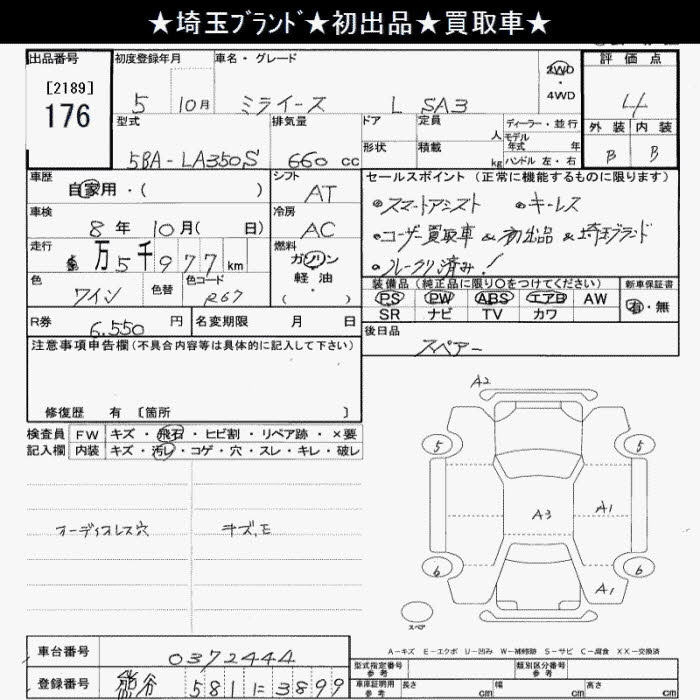 ★埼玉ﾌﾞﾗﾝﾄﾞ★初出品★買取車★
出品番号 初度登録年月 車名・グレード 2WD ・4WD 評価点
[2189]
176
5 10月 ミライース L SA3 4
型式 排気量 ドア 定員 人 ディーラー・並行 外装 内装
モデル年式 年
5BA-LA350S 660 cc 形状 積載 kg ハンドル 左・右 B B
車歴 自家用・( ) シフト AT セールスポイント (正常に機能するものに限ります)
車検 8年 10月( 日) 冷房 AC ・スマートアシスト ・キーレス
走行 万5千977km 燃料 ガソリン 軽油 ・( ) ・ユーザー買取車&初出品&埼玉ブランド
・ルークリ済み!
色 ワイン 色替 色コード R67 装備品(純正品に限り○をつけてください) 新車保証書
PS PW ABS エアB AW 有・無
SR ナビ TV カワ
R券 6,550円 名変期限 月 日 後日品
スペアー
注意事項申告欄(不具合内容等は具体的に記入して下さい)
修復歴 有 [箇所 ]
検査員 FW キズ・飛石・ヒビ割・リペア跡・×要
記入欄 内装 キズ・汚レ・コゲ・穴・スレ・キレ・破レ
オーディオレス穴 キズ,モ
A2
5 5
A3 A1
6 6
A1
スペア
A-キズ E-エクボ U-凹み W-補修跡 S-サビ C-腐食 XX-交換済
車台番号 0372444
型式指定番号 参考 類別区分番号 参考
登録番号 熊谷 581 に 3899
車庫証明用 参考 長さ cm 幅 cm 高さ cm